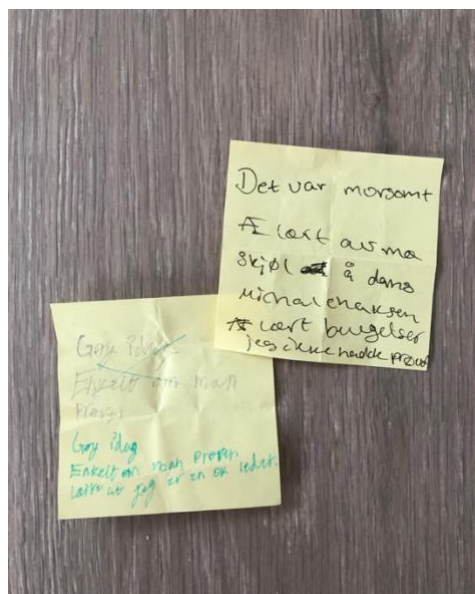 Det var morsomt
Æ lært av ma
skjøl å dans
Michal
Æ lært
jeg ikke hadde prøvd
Goy Idug
Enkelt om man
Prøver
Goy Idug
Enkelt om man prøver.
at jeg er en ok leder.